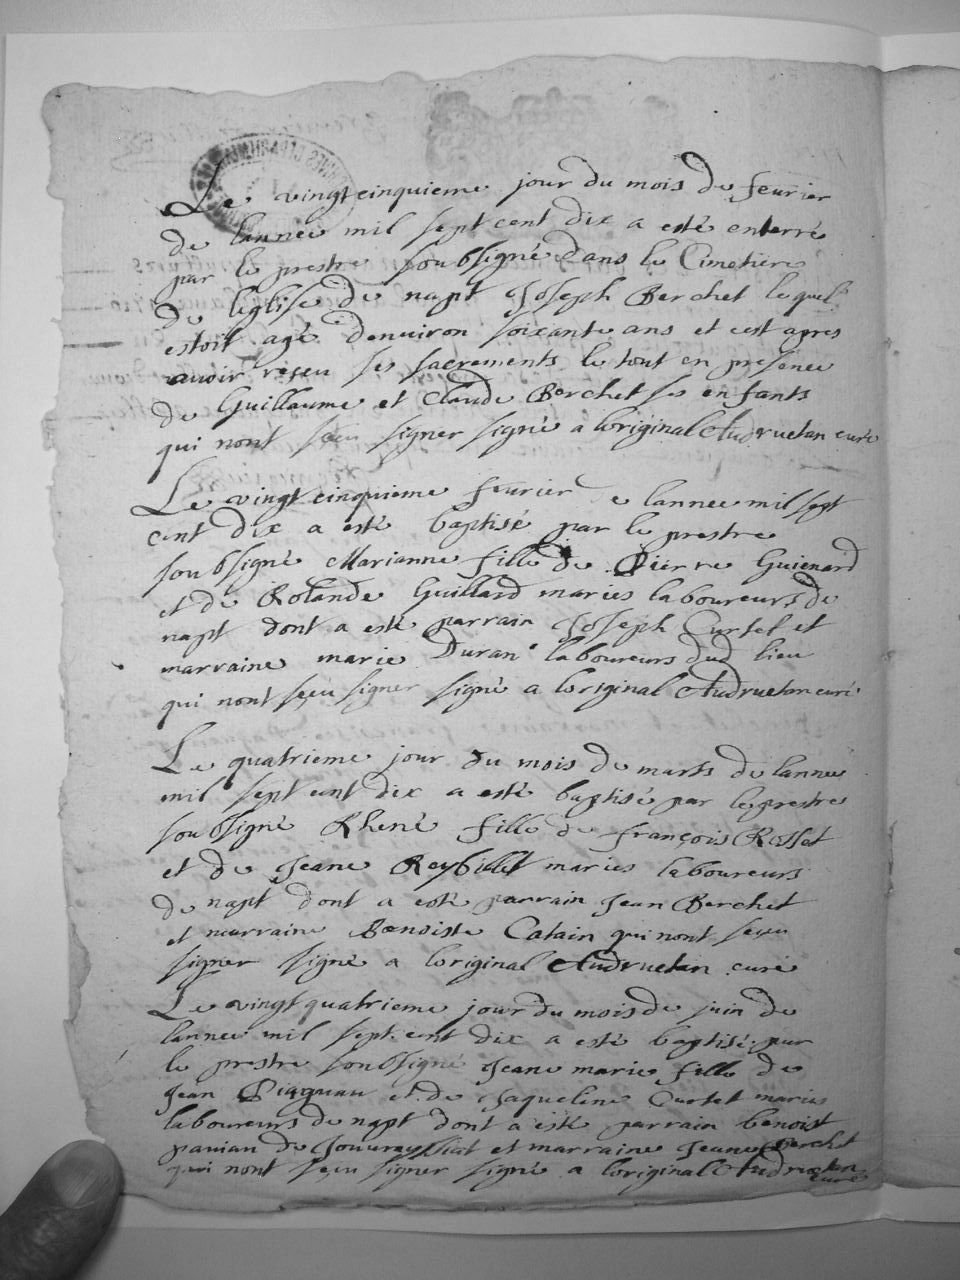 Le vingtcinquieme jour du mois de feurier
de lannee mil sept cent dix a esté enterré
par le prestre soubsigné dans le Cimetiere
de leglise de napt Joseph Berchet lequel
estoit agé denuiron soixante ans et cest apres
auoir reçeu ses sacrements le tout en presence
de Guillaume et Claude Berchet ses enfants
qui nont sçeu signer signé a loriginal Audruetan curé
Le vingt cinquieme feurier de lannee mil sept
cent dix a esté baptisé par le prestre
soubsigné Marianne fille de Pierre Guienard
et de Rolande Guillard maries laboureurs de
napt dont a esté parrain Joseph Curtet et
marraine marie Duran laboureurs dud lieu
qui nont sçeu signer signé a loriginal Audruetan curé
Le quatrieme jour du mois de marts de lannee
mil sept cent dix a esté baptisé par le prestre
soubsigné Rhené fille de françois Rosset
et de Jeane Reybillet maries laboureurs
de napt dont a esté parrain Jean Berchet
et marraine Benoiste Catain qui nont sçeu
signer signé a loriginal Audruetan curé
Le vingt quatrieme jour du mois de juin de
lannee mil sept cent dix a esté baptisé par
le prestre soubsigné Jeane marie fille de
Jean et de Jaqueline Curtet maries
laboureurs de napt dont a esté parrain benoist
pauian de et marraine Jeane Berchet
qui nont sçeu signer signé a loriginal Audruetan
curé